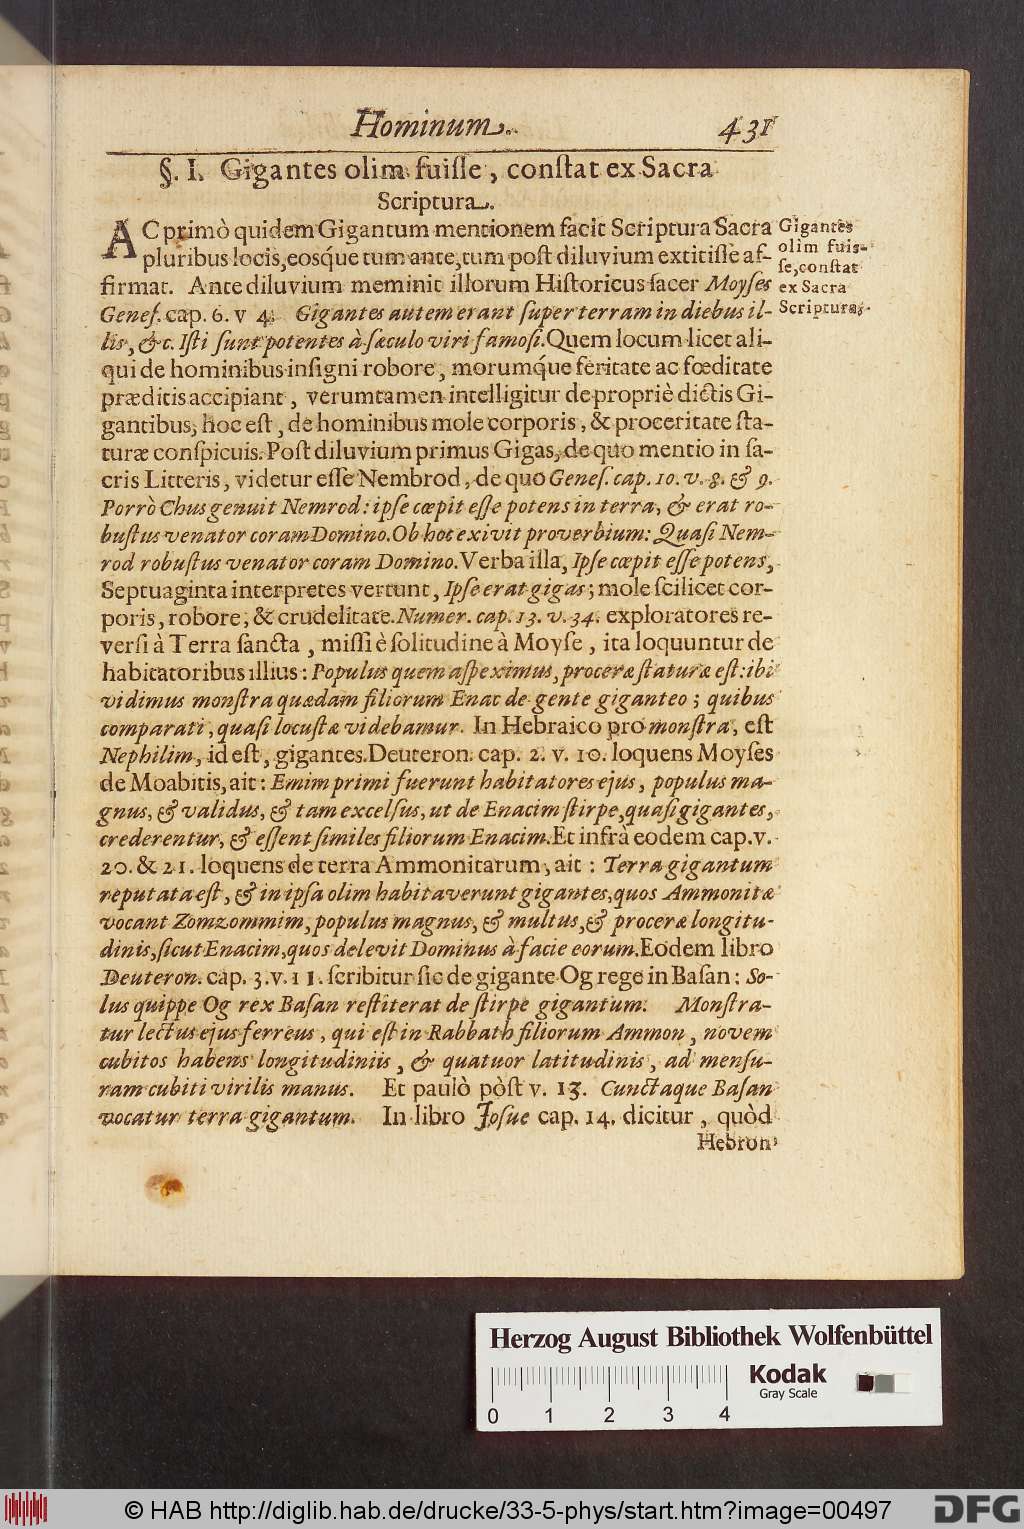 Hominum.
431
§. I. Gigantes olim fuiſſe, conſtat ex Sacra
Scriptura.
AC primò quidem Gigantum mentionem facit Scriptura Sacra
pluribus locis, eosq́ue tum ante, tum poſt diluvium extitiſſe af-
firmat. Ante diluvium meminit illorum Hiſtoricus ſacer Moyſes
Geneſ. cap. 6. v 4. Gigantes autem erant ſuper terram in diebus il-
lis, &c. Iſti ſunt potentes à ſæculo viri famoſi. Quem locum licet ali-
qui de hominibus inſigni robore, morumq́ue feritate ac fœditate
præditis accipiant, verumtamen intelligitur de propriè dictis Gi-
gantibus, hoc eſt, de hominibus mole corporis, & proceritate ſta-
turæ conſpicuis. Poſt diluvium primus Gigas, de quo mentio in ſa-
cris Litteris, videtur eſſe Nembrod, de quo Geneſ. cap. 10. v. 8. & 9.
Porrò Chus genuit Nemrod: ipſe cœpit eſſe potens in terra, & erat ro-
buſtus venator coram Domino. Ob hoc exivit proverbium: Quaſi Nem-
rod robuſtus venator coram Domino. Verba illa, Ipſe cœpit eſſe potens,
Septuaginta interpretes vertunt, Ipſe erat gigas; mole ſcilicet cor-
poris, robore, & crudelitate. Numer. cap. 13. v. 34. exploratores re-
verſi à Terra ſancta, miſſi è ſolitudine à Moyſe, ita loquuntur de
habitatoribus illius: Populus quem aſpeximus, proceræ ſtaturæ eſt: ibi
vidimus monſtra quædam filiorum Enac de gente giganteo; quibus
comparati, quaſi locuſtæ videbamur. In Hebraico pro monſtra, eſt
Nephilim, id eſt, gigantes. Deuteron. cap. 2. v. 10. loquens Moyſes
de Moabitis, ait: Emim primi fuerunt habitatores ejus, populus ma-
gnus, & validus, & tam excelſus, ut de Enacim ſtirpe, quaſi gigantes,
crederentur, & eſſent ſimiles filiorum Enacim. Et infrà eodem cap. v.
20. & 21. loquens de terra Ammonitarum, ait: Terra gigantum
reputata eſt, & in ipſa olim habitaverunt gigantes, quos Ammonitæ
vocant Zomzommim, populus magnus, & multus, & proceræ longitu-
dinis, ſicut Enacim, quos delevit Dominus à facie eorum. Eodem libro
Deuteron. cap. 3. v. 11. ſcribitur ſic de gigante Og rege in Baſan: So-
lus quippe Og rex Baſan reſtiterat de ſtirpe gigantum. Monſtra-
tur lectus ejus ferreus, qui eſt in Rabbath filiorum Ammon, novem
cubitos habens longitudiniis, & quatuor latitudinis, ad menſu-
ram cubiti virilis manus. Et paulò pòſt v. 13. Cunctaque Baſan
vocatur terra gigantum. In libro Joſue cap. 14. dicitur, quòd
Hebron
Gigantes
olim fuiſ-
ſe, conſtat
ex Sacra
Scriptura.
Herzog August Bibliothek Wolfenbüttel
Kodak
Gray Scale
0 1 2 3 4
© HAB http://diglib.hab.de/drucke/33-5-phys/start.htm?image=00497
DFG